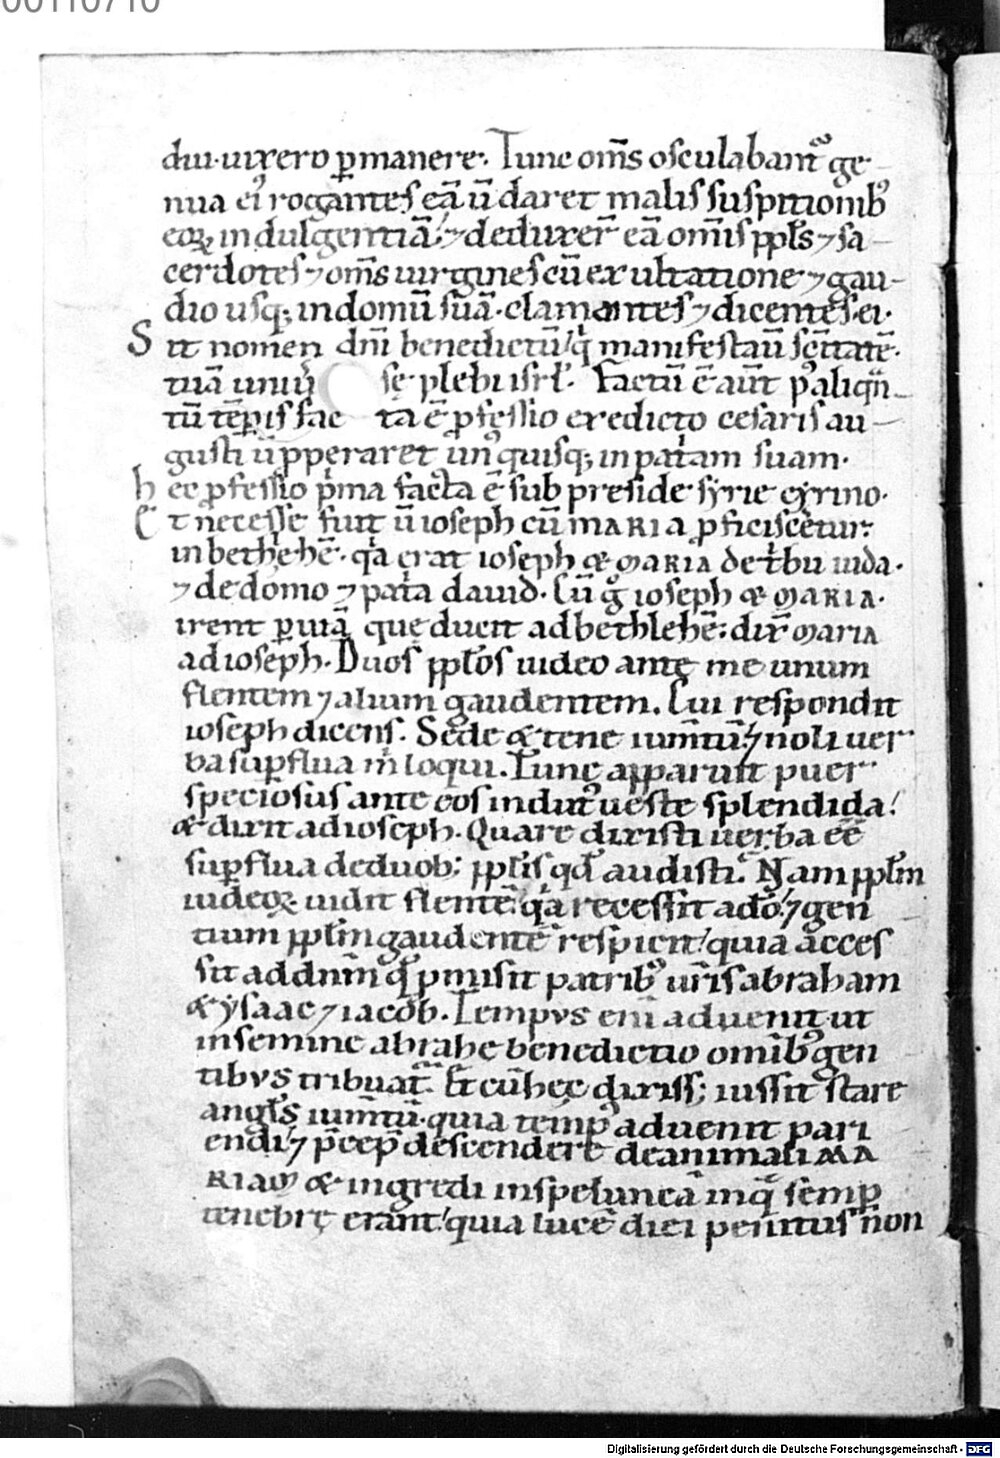 00110710
diu uixero ꝑmanere. Tunc om̄s osculabant᷑ ge-
nua eiꝰ rogantes eā ū daret malis suspitionibꝰ
eoꝝ indulgentiā. ⁊ deduxer̄ eā om̄is ppl̄s ⁊ sa-
cerdotes ⁊ om̄s uirgines cū exultatione ⁊ gau-
dio usq; in domū suā. clamantes ⁊ dicentes. ei.
Sit nomen dn̄i benedictū q̄ manifestau̅ sc̄itatē.
tuā uniu se plebi isrł. Factū ē aūt p aliqn̄-
tū tēꝑis fac ta ē ꝓfessio ex edicto cesaris au-
gusti ū ppeṛaret unꝰquisq; in patam suam.
hec ꝓfessio p̄ma facta ē sub preside syrie cyrino.
Et necesse fuit ū ioseph cū MARIA ꝓficiscetur.
in bethehē. qa erat ioseph & MARIA de t̄bu iuda.
⁊ de domo ⁊ pat̄a dauid. Cū g̊ ioseph & MARIA.
irent ꝑ uiā que ducit ad bethlehē. dix̄ MARIA
ad ioseph. Duos ppl̄os uideo ante me unum
flentem ⁊ alium gaudentem. Cui respondit
ioseph dicens. Sede & tene ium̄tū ⁊ noli uer
ba suꝑflua m̄ loqui. Tunc apparuit puer
speciosus ante eos indutꝰ ueste splendida.
& dixit ad ioseph. Quare dixisti uerba eē
suꝑflua de duob; ppl̄is qd̄ audisti. Nam ppl̄m
iudeoꝝ uidit flentē. qa recessit a dō. ⁊ gen
tium ppl̄m gaudentē respicit. quia acces
sit ad dn̄m q̄ pmisit patribꝰ ur̄is abraham
& ysaac ⁊ iacob. Tempus eni̅ aduenit ut
in semine abrahe benedictio omībꝰ gen
tibus tribuat᷑. Et cū hec dixiss; iussit stare
angl̄s ium̄tū. quia tempꝰ aduenit pari
endi. ⁊ p̄cep̄ descendere de animali MA
RIAM & ingredi in speluncā in q̄ semꝑ
tenebrę erant. quia lucē diei penitus non
Digitalisierung gefördert durch die Deutsche Forschungsgemeinschaft - DFG